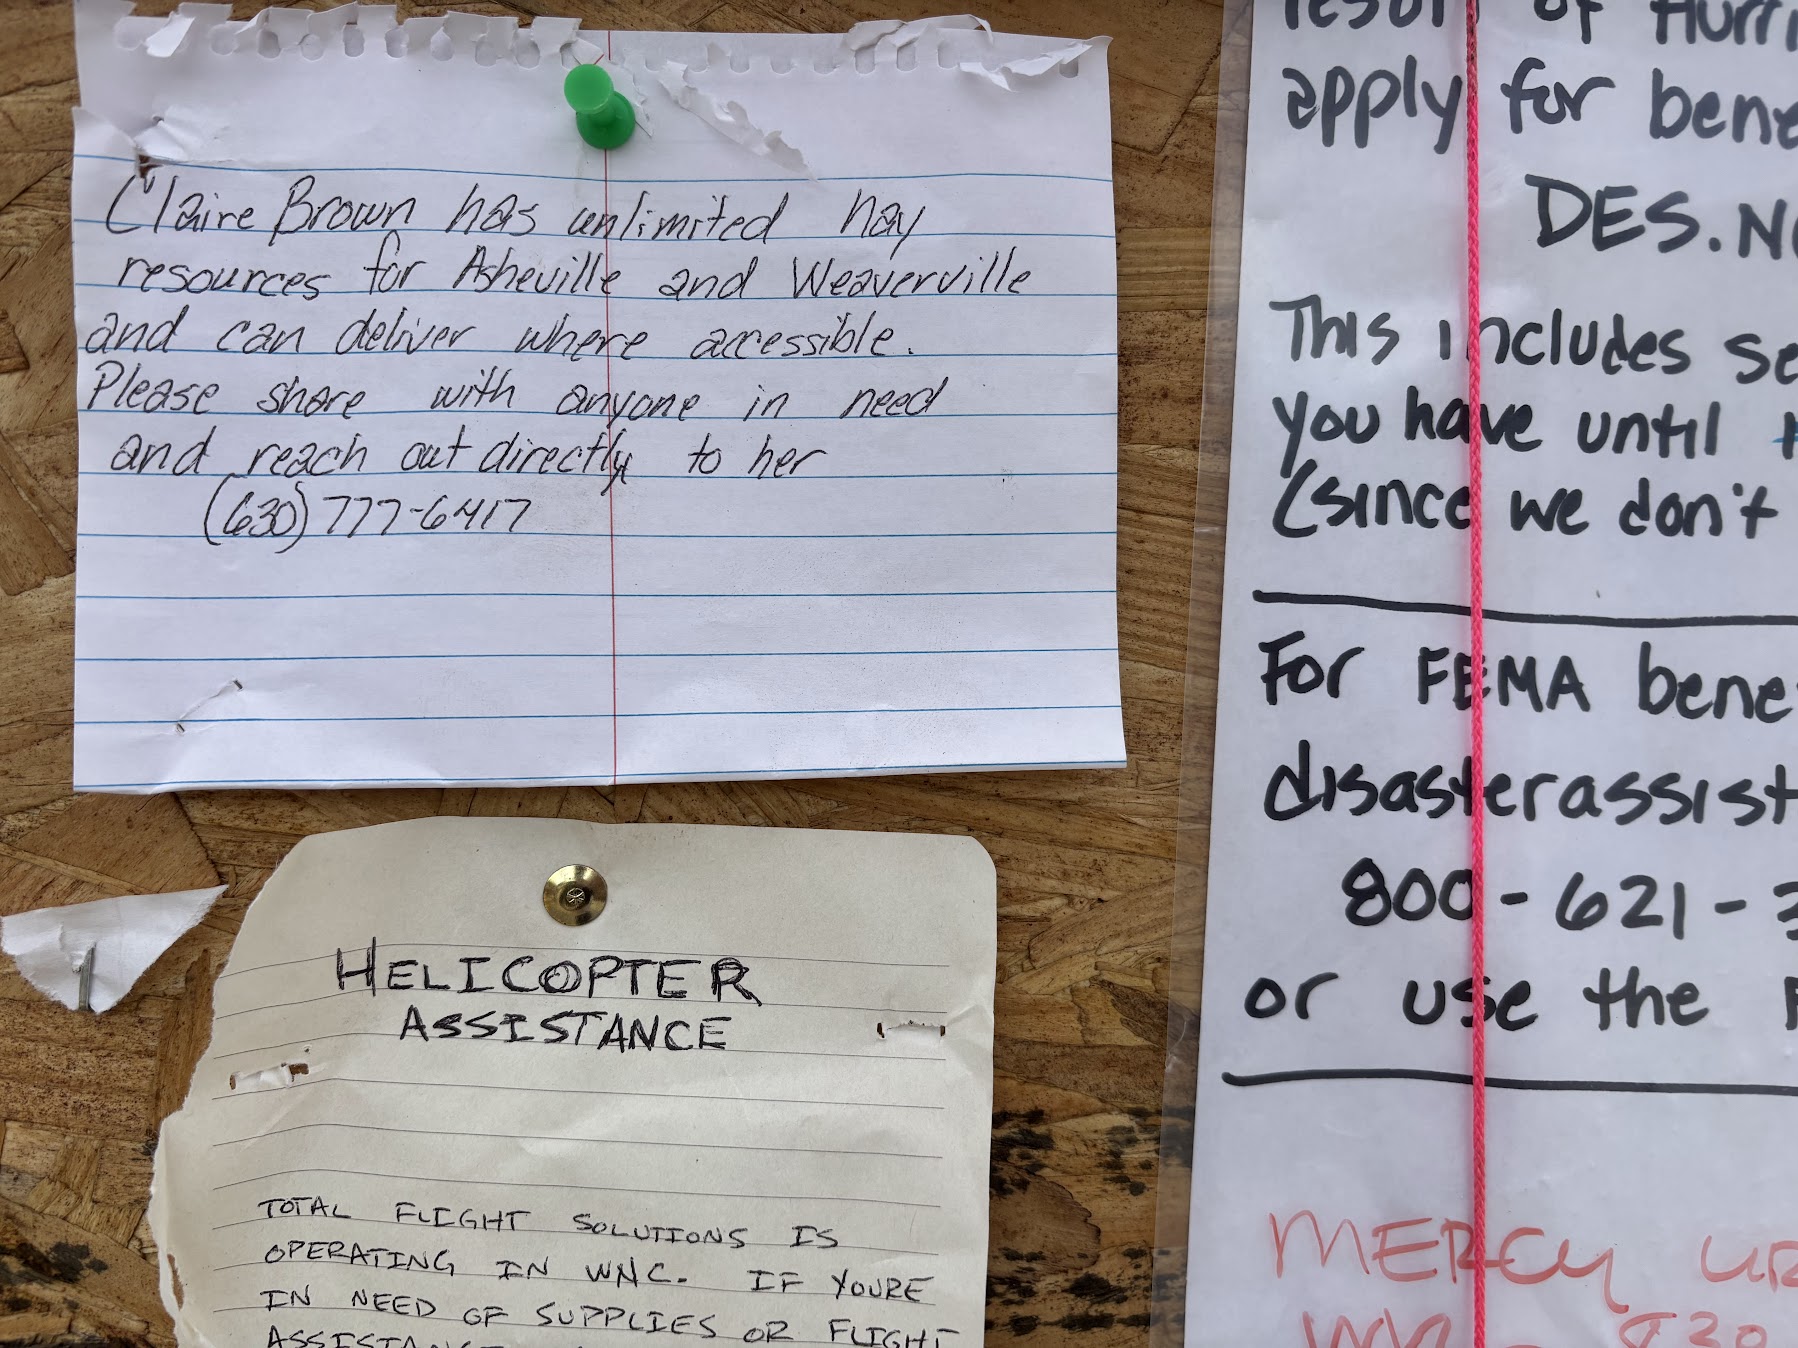 Claire Brown has unlimited hay
resources for Asheville and Weaverville
and can deliver where accessible.
Please share with anyone in need
and reach out directly to her
(630) 777-6417
HELICOPTER
ASSISTANCE
TOTAL FLIGHT SOLUTIONS IS
OPERATING IN WNC. IF YOURE
IN NEED OF SUPPLIES OR FLIGHT
of
apply for
DES.
This includes
you have until
(since we don't
For FEMA
disasterassist
800-621-
or use the
MERCY